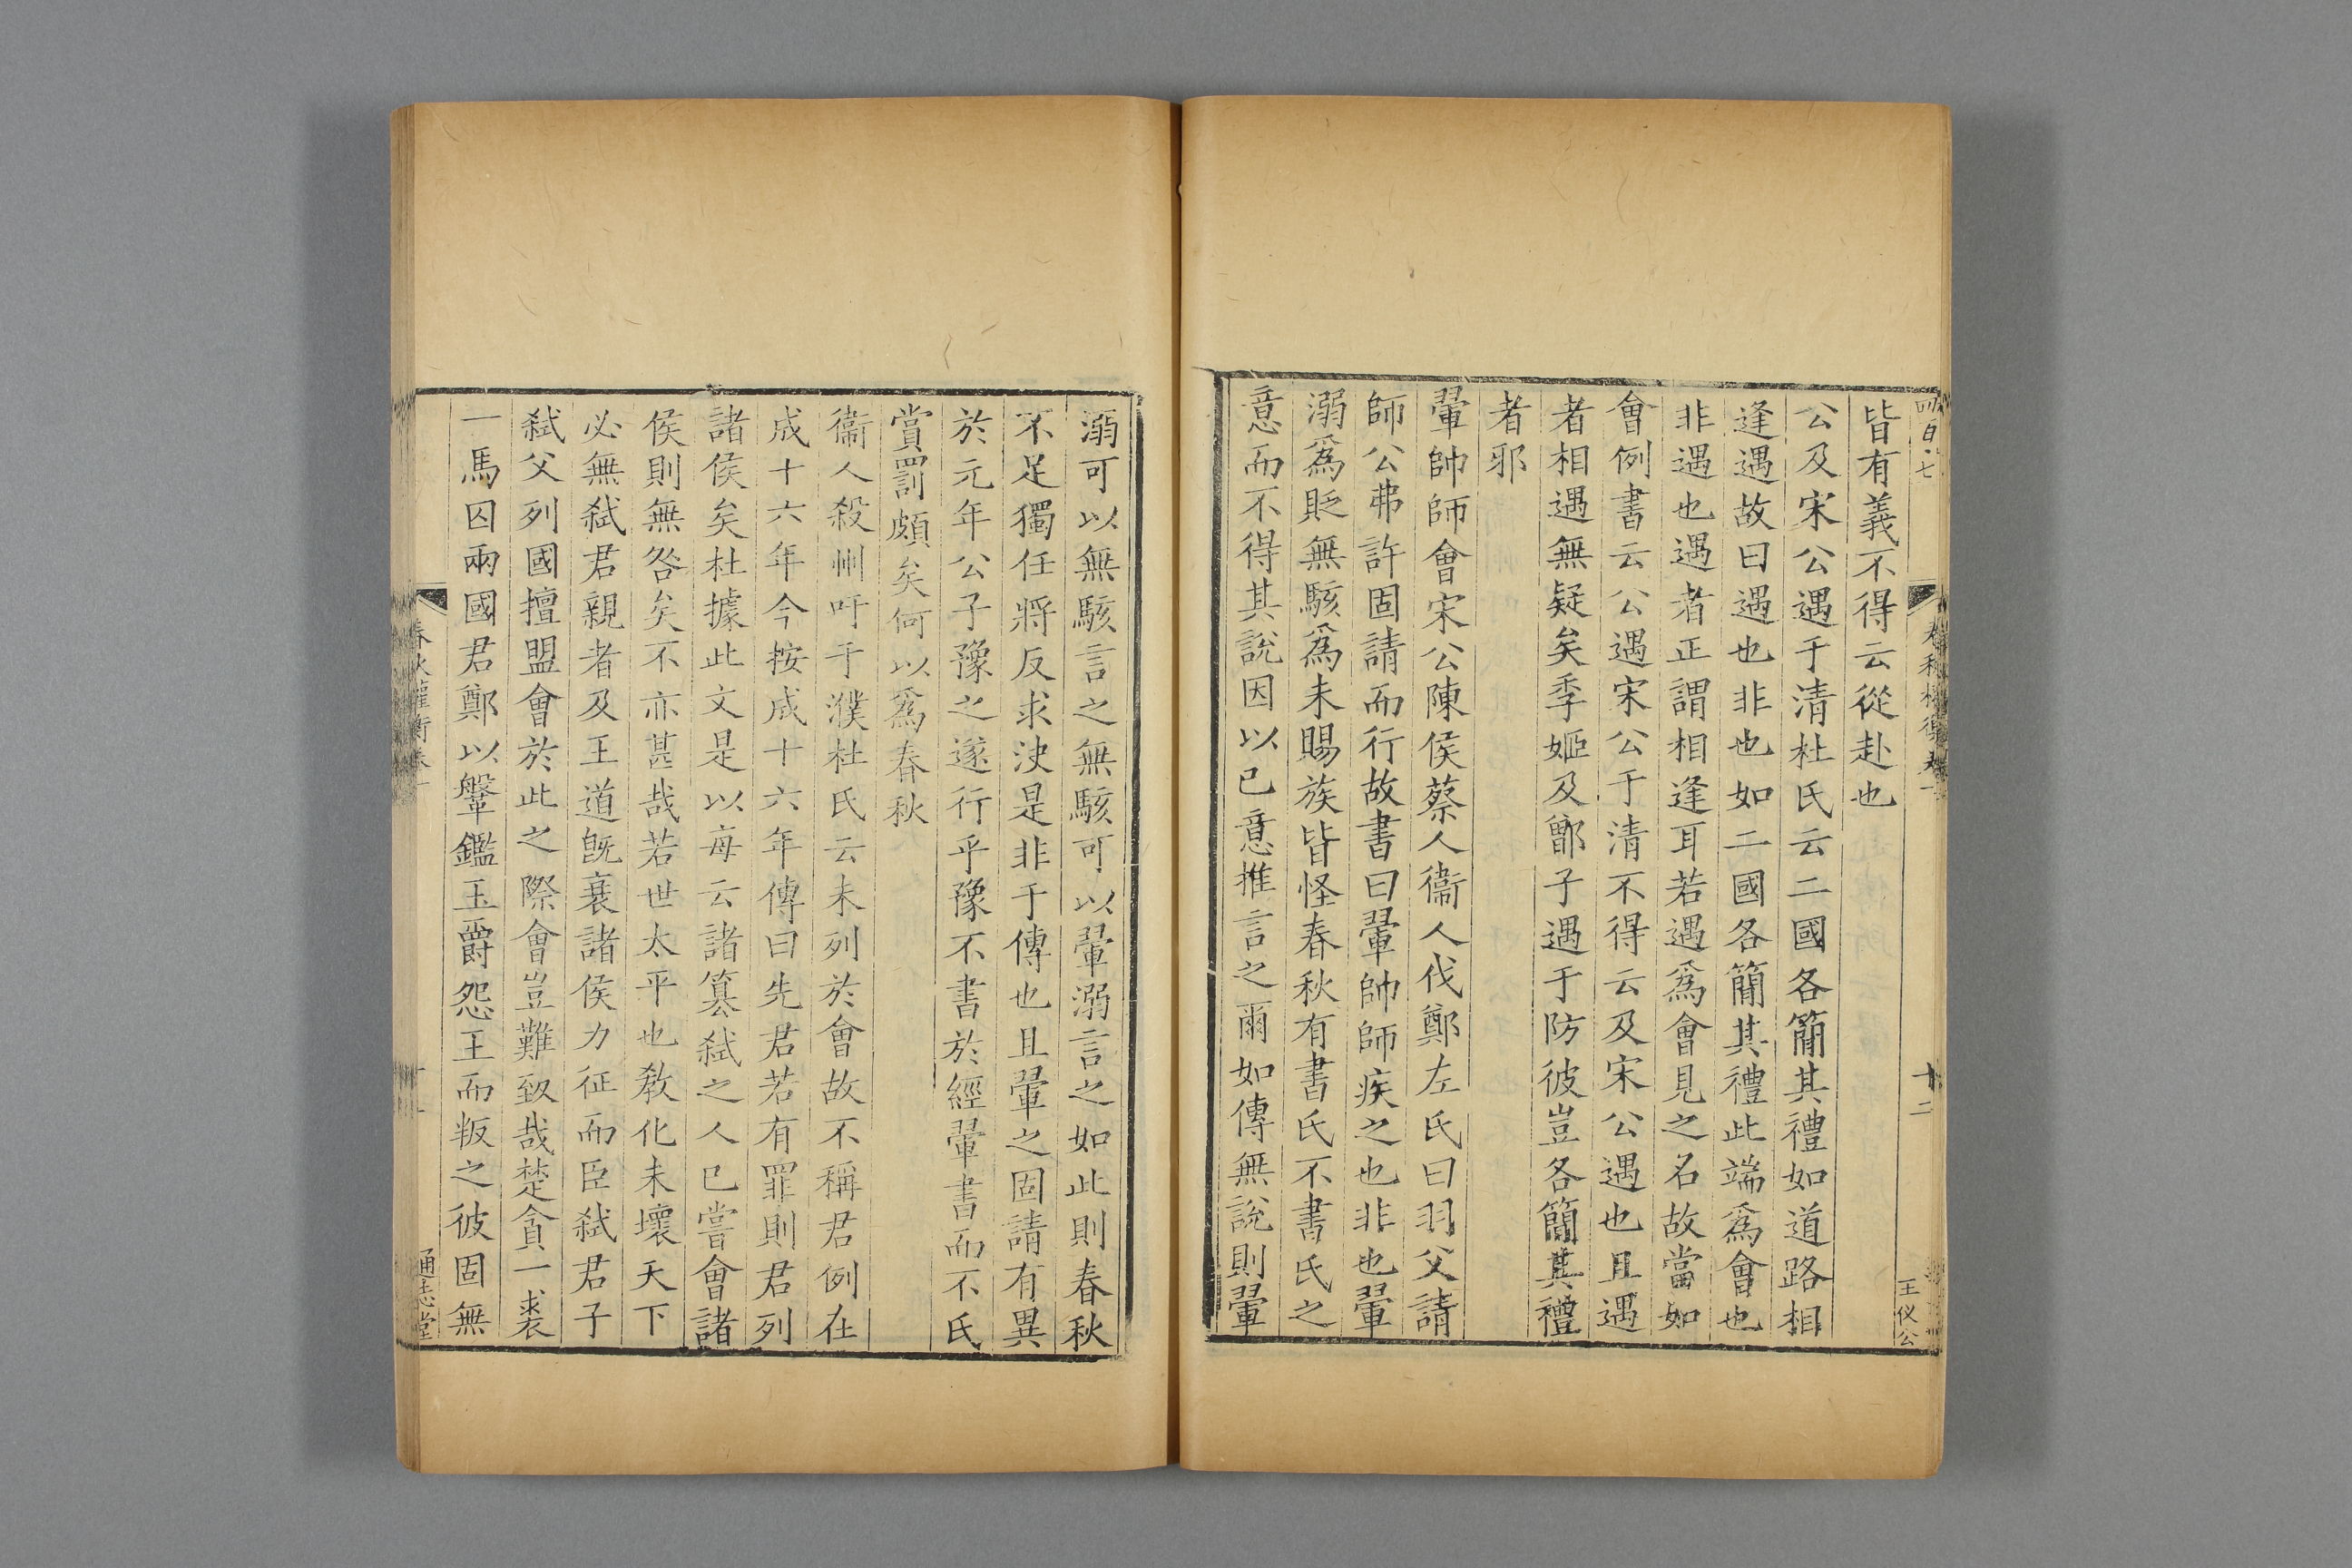 四百·七
十二
王仪公
皆有義不得云從赴也
公及宋公遇于清杜氏云二國各簡其禮如道路相
逢遇故曰遇也非也如二國各簡其禮此端爲會也
非遇也遇者正謂相逢耳若遇爲會見之名故當如
會例書云公遇宋公于清不得云及宋公遇也且遇
者相遇無疑矣季姬及鄫子遇于防彼豈各簡其禮
者邪
翬帥師會宋公陳侯蔡人衞人伐鄭左氏曰羽父請
師公弗許固請而行故書曰翬帥師疾之也非也翬
溺爲貶無駭爲未賜族皆怪春秋有書氏不書氏之
意而不得其說因以已意推言之爾如傳無說則翬
溺可以無駭言之無駭可以翬溺言之如此則春秋
不足獨任將反求決是非于傳也且翬之固請有異
於元年公子豫之遂行乎豫不書於經翬書而不氏
賞罰頗矣何以爲春秋
衞人殺州吁于濮杜氏云未列於會故不稱君例在
成十六年今按成十六年傳曰先君若有罪則君列
諸侯矣杜據此文是以每云諸篡弑之人已嘗會諸
侯則無咎矣不亦甚哉若世太平也敎化未壞天下
必無弑君親者及王道旣衰諸侯力征而臣弑君子
弑父列國擅盟會於此之際會豈難致哉楚貪一裘
一馬囚兩國君鄭以鞶鑑玉爵怨王而叛之彼固無
春秋權衡卷一
通志堂